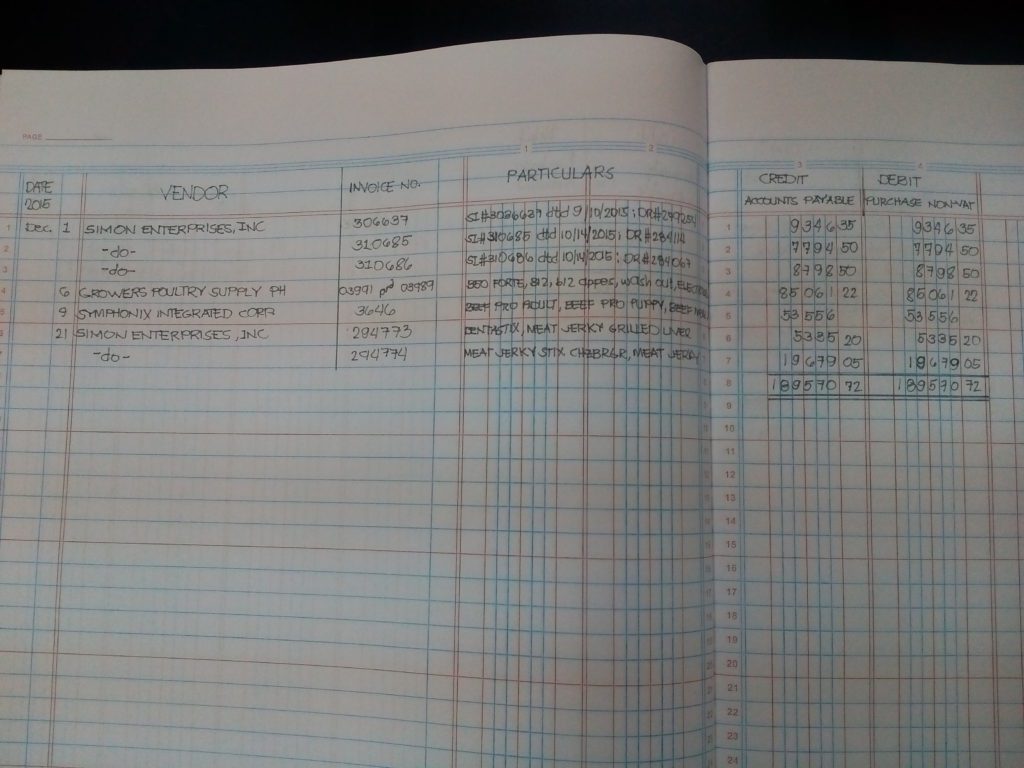 PAGE
1 2
3 4
DATE 2015 VENDOR INVOICE NO. PARTICULARS CREDIT ACCOUNTS PAYABLE DEBIT PURCHASE NON-VAT
1 Dec. 1 SIMON ENTERPRISES, INC 306637 dtd 9/10/2015; DR# 1 9346 35 9346 35
2 -do- 310685 SI#310685 dtd 10/14/2015; DR#284114 2 7794 50 7794 50
3 -do- 310686 SI#310686 dtd 10/14/2015; DR#284067 3 8798 50 8798 50
4 6 GROWERS POULTRY SUPPLY PH 03991 03989 FORTE, B12, wash out, 4 85061 22 85061 22
5 9 SYMPHONIX INTEGRATED CORP 3646 BEEF PRO ADULT, BEEF PRO PUPPY, BEEF 5 53556 53556
6 21 SIMON ENTERPRISES, INC 294773 DENTASTIX, MEAT JERKY GRILLED LIVER 6 5335 20 5335 20
7 -do- 294774 MEAT JERKY STIX CHZBRGR, MEAT JERKY 7 19679 05 19679 05
8 189570 72 189570 72
9
10
11
12
13
14
15
16
17
18
19
20
21
22
23
24